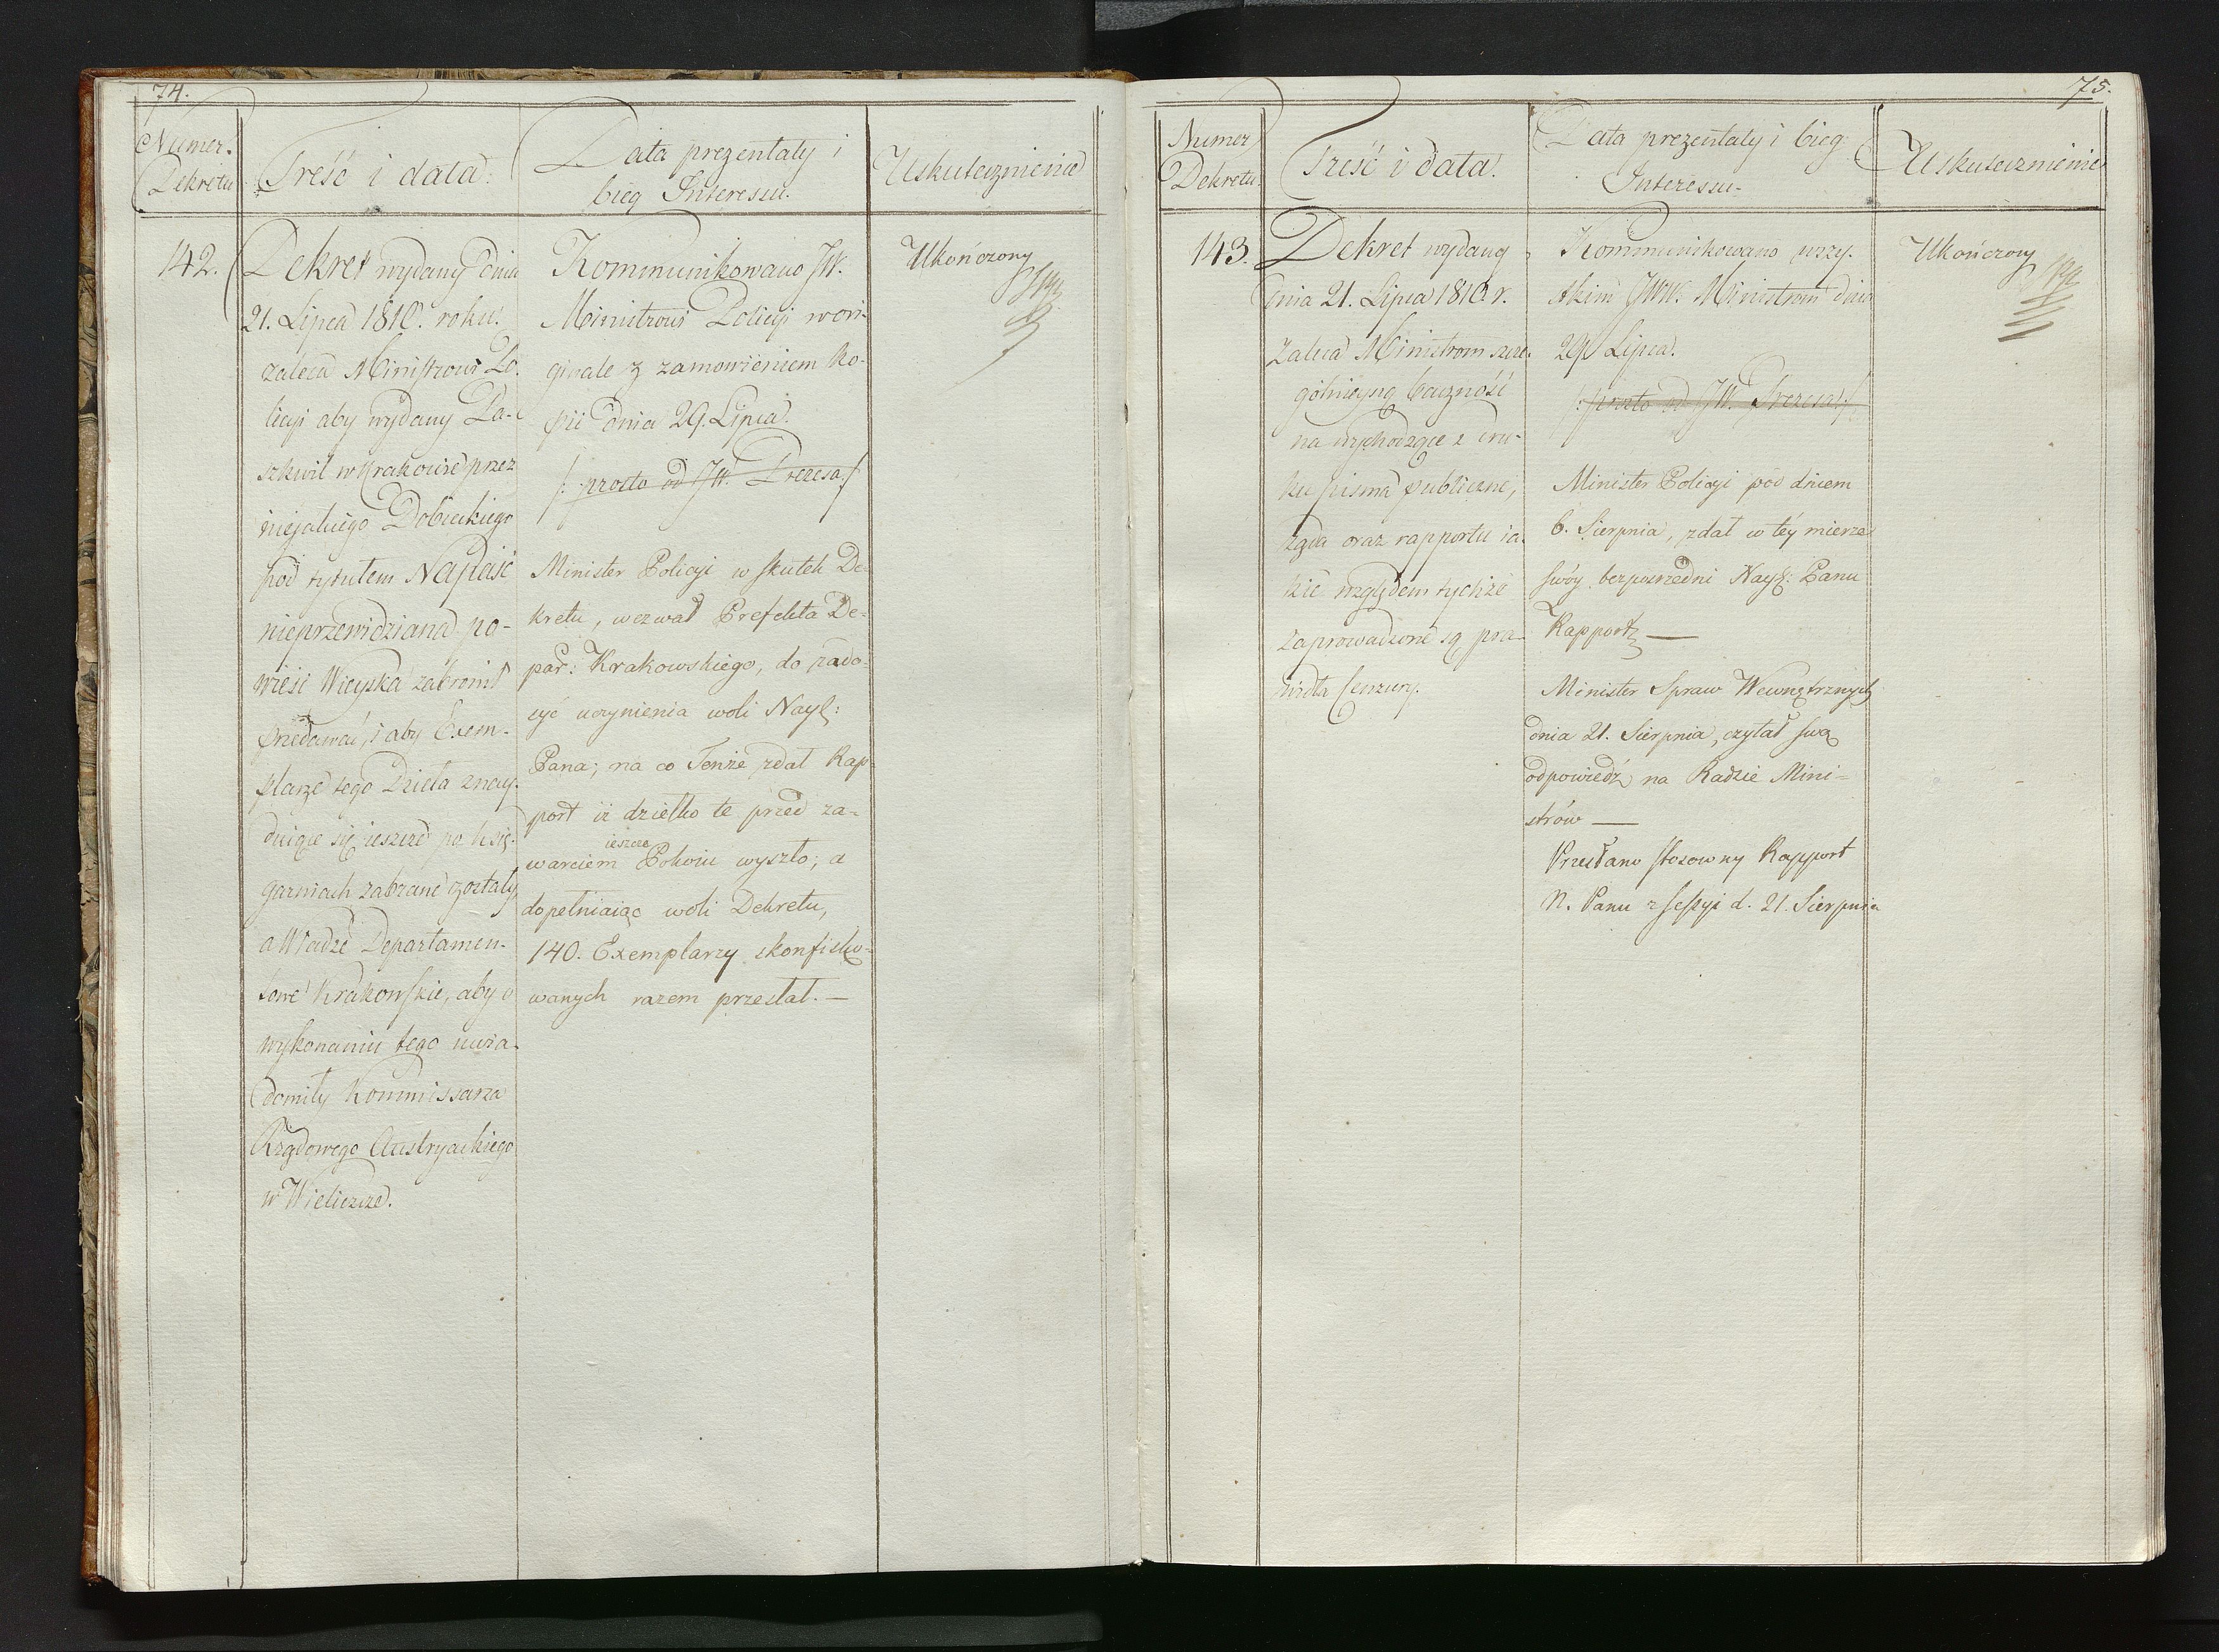 74.
Numer.
Dekretu
Treść i data.
Data prezentaty i
bieg Interessu.
Uskutecznienie
142.
Dekret wydany dnia
21. Lipca 1810. roku.
zaleca Ministrowi Po-
licyi aby wydany Pa-
szkwil w Krakowie przez
niejakiego Dobieckiego
pod tytułem Napaść
nieprzewidziana po-
wieść Wieyska zabronił
przedawać, i aby Exem-
plarze tego Dzieła znay-
duiące się ieszcze po księ-
garniach zabrane zostały,
a Władze Departamen-
towe Krakowskie, aby o
wykonaniu tego uwia-
domiły Kommissarza
Rządowego Austryackiego
w Wieliczce.
Kommunikowano JW.
Ministrowi Policyi w ori-
ginale z zamowieniem ko-
pii dnia 29. Lipca.
/: prosto od JW. Prezesa :/
Minister Policyi w skutek De-
kretu, wezwał Prefekta De-
par: Krakowskiego, do zado-
syć uczynienia woli Nayj:
Pana; na co Tenże zdał Rap-
port iż dziełko te przed za-
ieszcze
warciem Pokoiu wyszło; a
dopełniaiąc woli Dekretu,
140. Exemplarzy skonfisko-
wanych razem przesłał. —
Ukończony
75.
Numer
Dekretu.
Treść i data.
Data prezentaty i bieg
Interessu.
Uskutecznienie
143.
Dekret wydany
dnia 21. Lipca 1810 r.
zaleca Ministrom szcze-
gólnieyszą baczność
na wychodzące z dru-
ku pisma publiczne,
żąda oraz rapportu ia-
kie względem tychże
zaprowadzone są pra-
widła Cenzury.
Kommunikowano wszy-
stkim JWW. Ministrom dnia
29. Lipca.
/: prosto od JW. Prezesa :/
Minister Policyi pod dniem
6. Sierpnia, zdał w téy mierze
swóy bezpośrzedni Nayj: Panu
Rapport —
Minister Spraw Wewnętrznych
dnia 21. Sierpnia, czytał swą
odpowiedź na Radzie Mini-
strów —
Przesłano stosowny Rapport
N. Panu z sessyi d. 21. Sierpnia
Ukończony